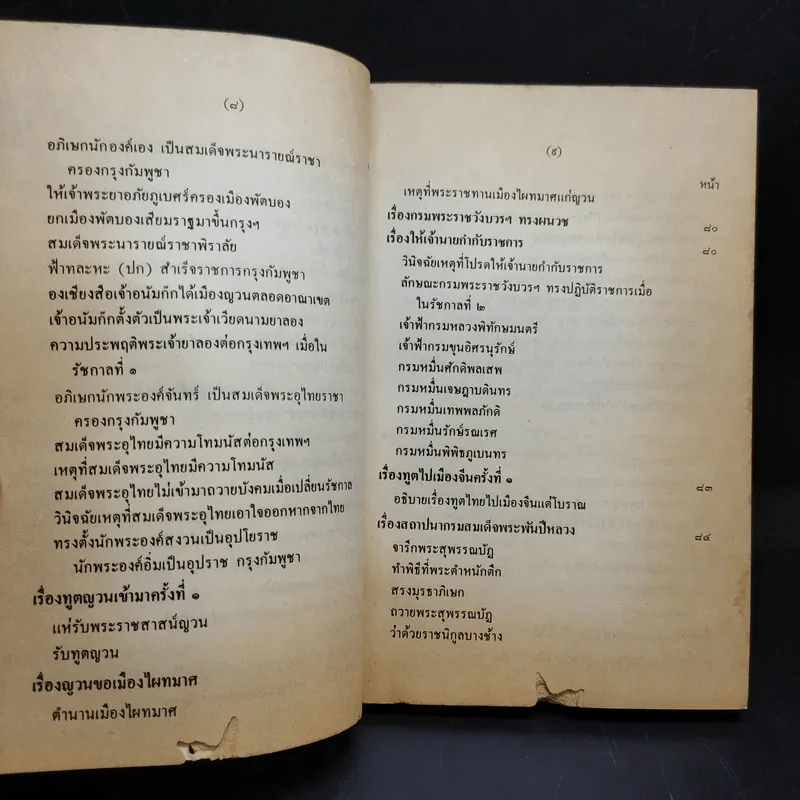 (๘)
อภิเษกนักองค์เอง เป็นสมเด็จพระนารายณ์ราชา
ครองกรุงกัมพูชา
ให้เจ้าพระยาอภัยภูเบศร์ครองเมืองพัตบอง
ยกเมืองพัตบองเสียมราฐมาขึ้นกรุงฯ
สมเด็จพระนารายณ์ราชาพิราลัย
ฟ้าทละหะ (ปก) สำเร็จราชการกรุงกัมพูชา
องเชียงสือเจ้าอนัมก๊กได้เมืองญวนตลอดอาณาเขต
เจ้าอนัมก๊กตั้งตัวเป็นพระเจ้าเวียดนามยาลอง
ความประพฤติพระเจ้ายาลองต่อกรุงเทพฯ เมื่อใน
รัชกาลที่ ๑
อภิเษกนักพระองค์จันทร์ เป็นสมเด็จพระอุไทยราชา
ครองกรุงกัมพูชา
สมเด็จพระอุไทยมีความโทมนัสต่อกรุงเทพฯ
เหตุที่สมเด็จพระอุไทยมีความโทมนัส
สมเด็จพระอุไทยไม่เข้ามาถวายบังคมเมื่อเปลี่ยนรัชกาล
วินิจฉัยเหตุที่สมเด็จพระอุไทยเอาใจออกหากจากไทย
ทรงตั้งนักพระองค์สงวนเป็นอุปโยราช
นักพระองค์อิ่มเป็นอุปราช กรุงกัมพูชา
เรื่องทูตญวนเข้ามาครั้งที่ ๑
แห่รับพระราชสาสน์ญวน
รับทูตญวน
เรื่องญวนขอเมืองไผทมาศ
ตำนานเมืองไผทมาศ
(๙)
หน้า
เหตุที่พระราชทานเมืองไผทมาศแก่ญวน
เรื่องกรมพระราชวังบวรฯ ทรงผนวช ๘๐
เรื่องให้เจ้านายกำกับราชการ ๘๐
วินิจฉัยเหตุที่โปรดให้เจ้านายกำกับราชการ
ลักษณะกรมพระราชวังบวรฯ ทรงปฏิบัติราชการเมื่อ
ในรัชกาลที่ ๒
เจ้าฟ้ากรมหลวงพิทักษมนตรี
เจ้าฟ้ากรมขุนอิศรนุรักษ์
กรมหมื่นศักดิพลเสพ
กรมหมื่นเจษฎาบดินทร
กรมหมื่นเทพพลภักดิ
กรมหมื่นรักษ์รณเรศ
กรมหมื่นพิพิธภูเบนทร
เรื่องทูตไปเมืองจีนครั้งที่ ๑ ๘๓
อธิบายเรื่องทูตไทยไปเมืองจีนแต่โบราณ
เรื่องสถาปนากรมสมเด็จพระพันปีหลวง ๘๔
จารึกพระสุพรรณบัฏ
ทำพิธีที่พระตำหนักตึก
สรงมุรธาภิเษก
ถวายพระสุพรรณบัฏ
ว่าด้วยราชนิกูลบางช้าง